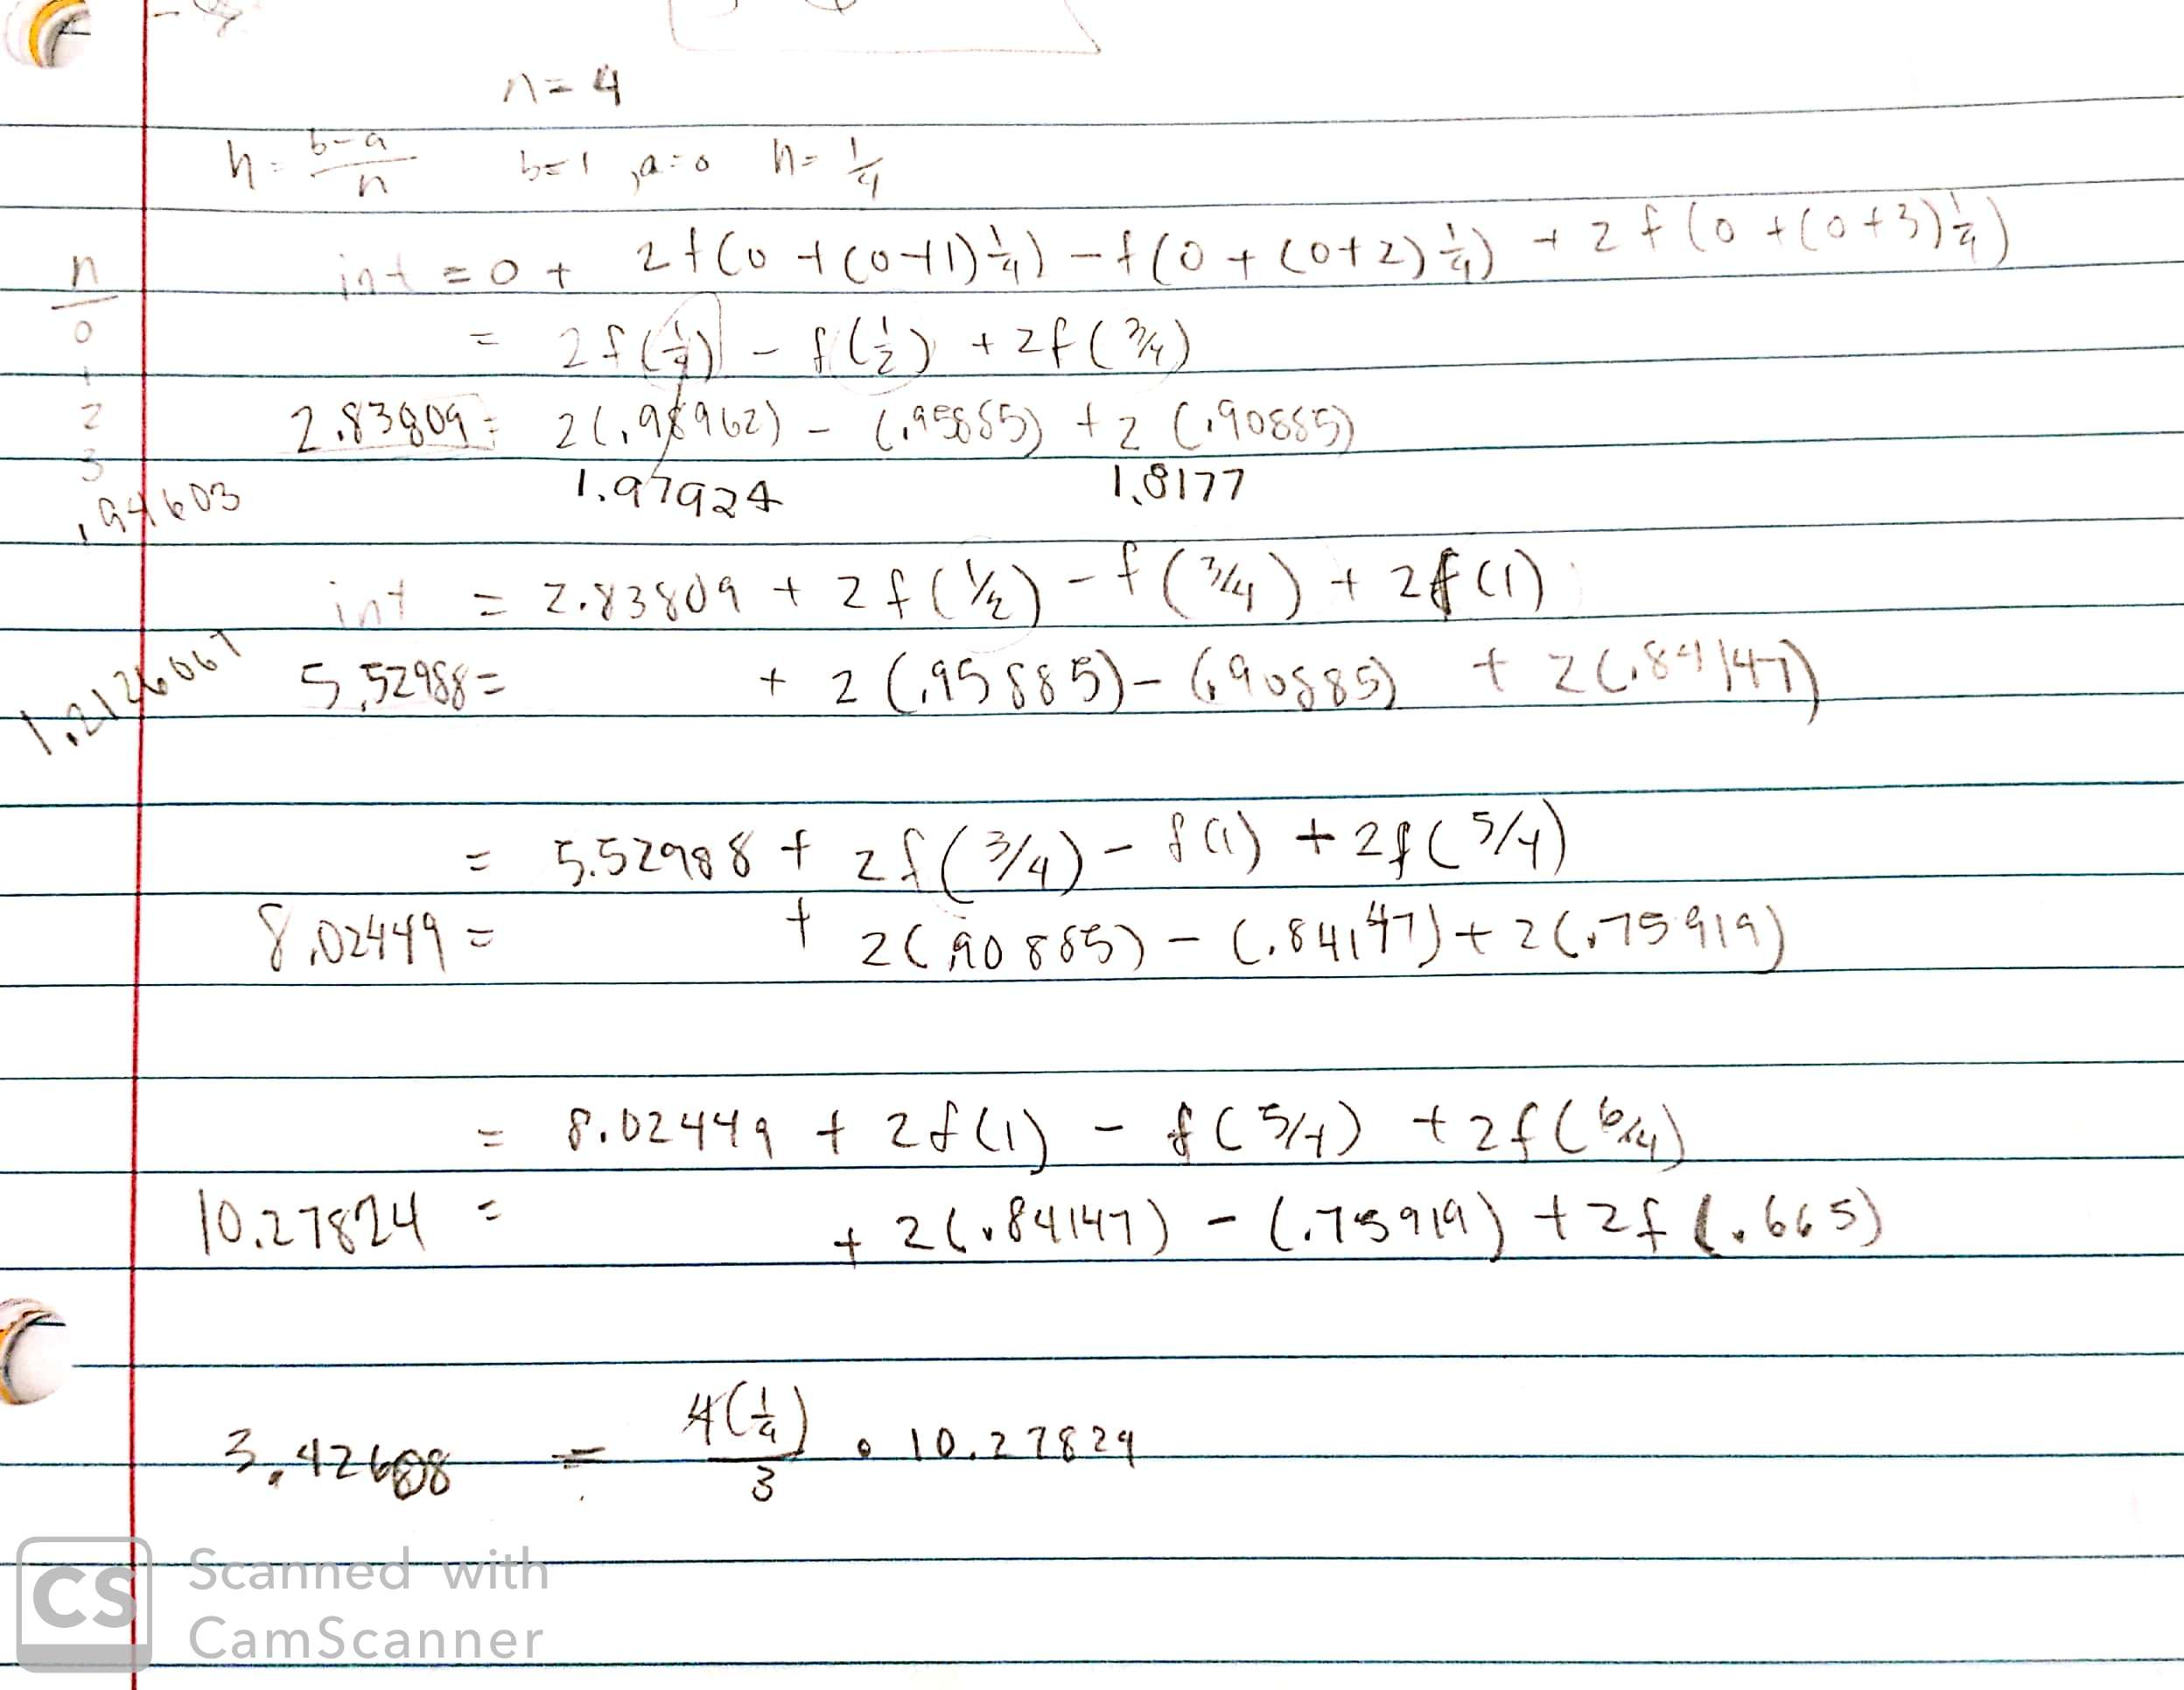 n = 4
h = b-a/n    b=1, a=0    h = 1/4
int = 0 + 2f(0+(0+1)1/4) - f(0+(0+2)1/4) + 2f(0+(0+3)1/4)
n
0
1
2
3
= 2f(1/4) - f(1/2) + 2f(3/4)
2.83809 = 2(.98962) - (.95885) + 2(.90885)
1.97924    1.8177
.94603
int = 2.83809 + 2f(1/2) - f(3/4) + 2f(1)
5.52988 = + 2(.95885) - (.90885) + 2(.84147)
= 5.52988 + 2f(3/4) - f(1) + 2f(5/4)
8.02449 = + 2(.90885) - (.84147) + 2(.75919)
= 8.02449 + 2f(1) - f(5/4) + 2f(6/4)
10.27824 = + 2(.84147) - (.75919) + 2f(.665)
3.42608 = 4(1/4)/3 · 10.27824
CS Scanned with
CamScanner